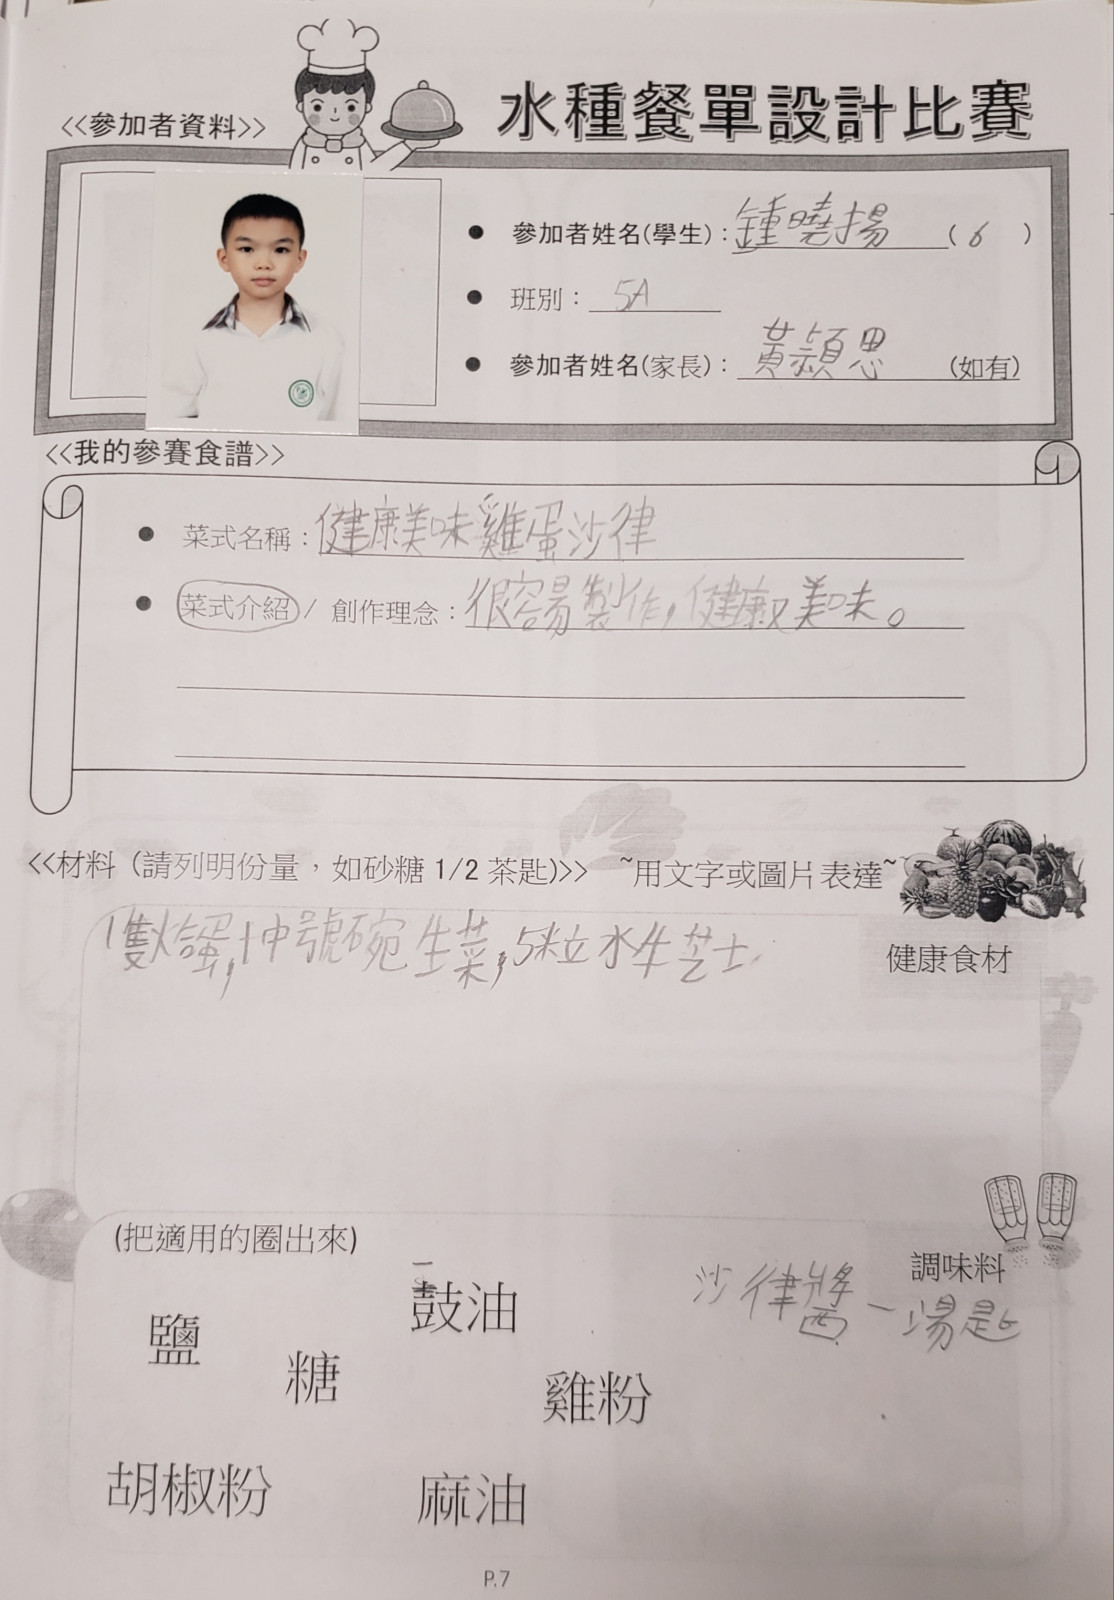 水種餐單設計比賽
<<參加者資料>>
參加者姓名(學生)：鍾曉揚 (6)
班別：5A
參加者姓名(家長)：黃潁思 (如有)
<<我的參賽食譜>>
菜式名稱：健康美味雞蛋沙律
菜式介紹 / 創作理念：很容易製作，健康又美味。
<<材料 (請列明份量，如砂糖 1/2 茶匙)>> ~用文字或圖片表達~
1隻烚蛋，1中號碗生菜，5粒水牛芝士
健康食材
(把適用的圈出來)
調味料
沙律醬一湯匙
鹽
豉油
糖
雞粉
胡椒粉
麻油
P.7